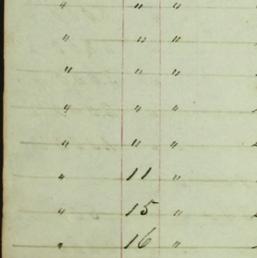 " " "
" " "
" " "
" " "
" " "
" 11 "
" 15 "
" 16 "